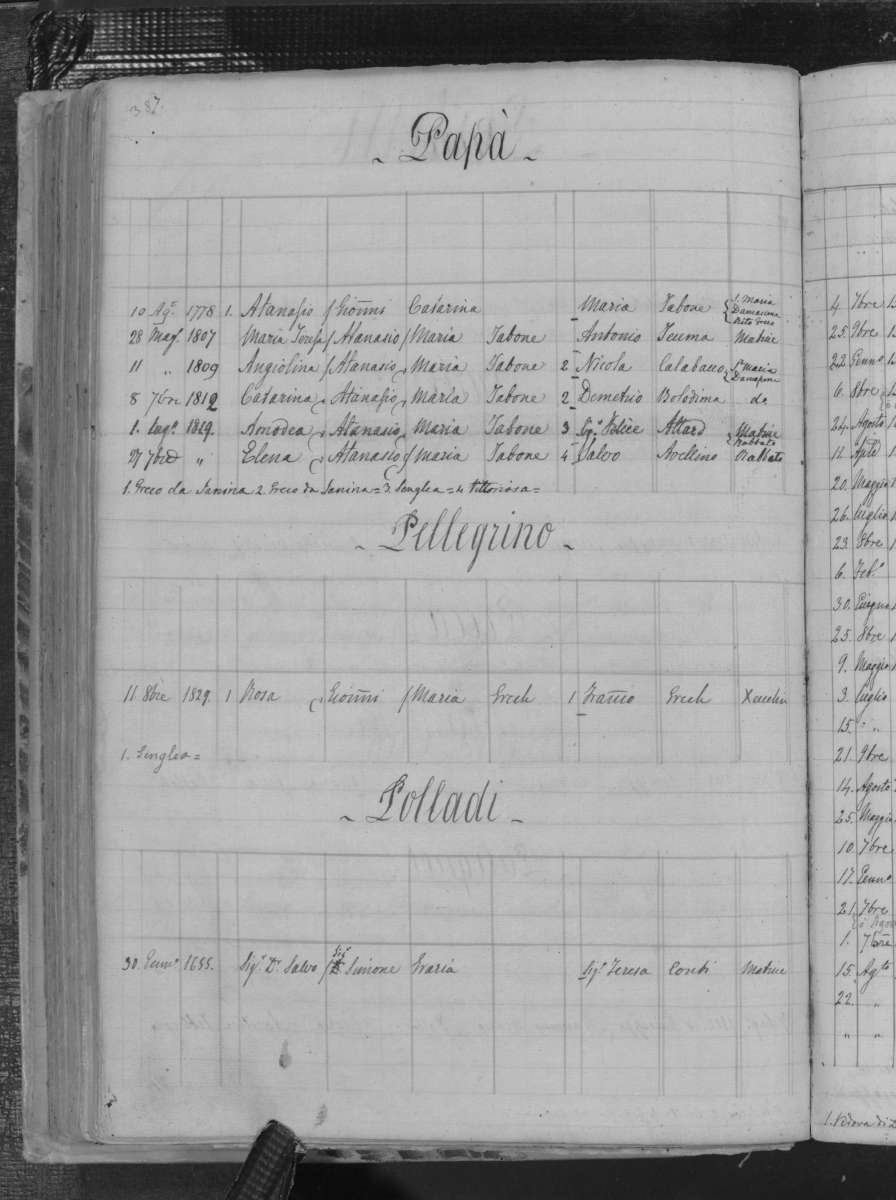 387.
- Papà -
10 Agᵗ 1778 1. Atanasio / Gioñni Catarina Maria Tabone { S. Maria Damascena Rito Greco
28 Magº 1807 Maria Teresa / Atanasio / Maria Tabone Antonio Teuma Matrice
11 " 1809 Angiolina / Atanasio, Maria Tabone 2 Nicola Calabasso { Sª Maria
8 7bre 1812 Catarina, Atanasio, Maria Tabone 2 Demetrio Bolodima da
1. Lugº 1829. Amodea, Atanasio, Maria Tabone 3 Sigʳ Felice Attard { Matrice Rabbato
27 7bre " Elena, Atanasio / Maria Tabone 4 Salvo Avellino Rabbato
1. Greco da Janina 2. Greco da Janina = 3. Senglea = 4 Vittoriosa =
- Pellegrino -
11 8bre 1829. 1 Rosa, Gioñni / Maria Grech 1 Frañco Grech
1. Senglea =
- Polladi -
30. Gennº 1655. Sigʳ Dʳ Salvo / Sigʳ Simone Graria Sigʳ Teresa Conti Matrice
4 7bre
25 9bre
22 Gennº
6. 8bre
24 Agosto
11 Aple
20 Maggio
26. Luglio
23 8bre
6. Febº
30. Giugno
25. 8bre
9. Maggio
3. Luglio
15. "
21. 9bre
14. Agosto
25. Maggio
10. 7bre
17. Gennº
21. 7bre
1. 7bre
15. Agto
22. "
" "
1. Vedova di